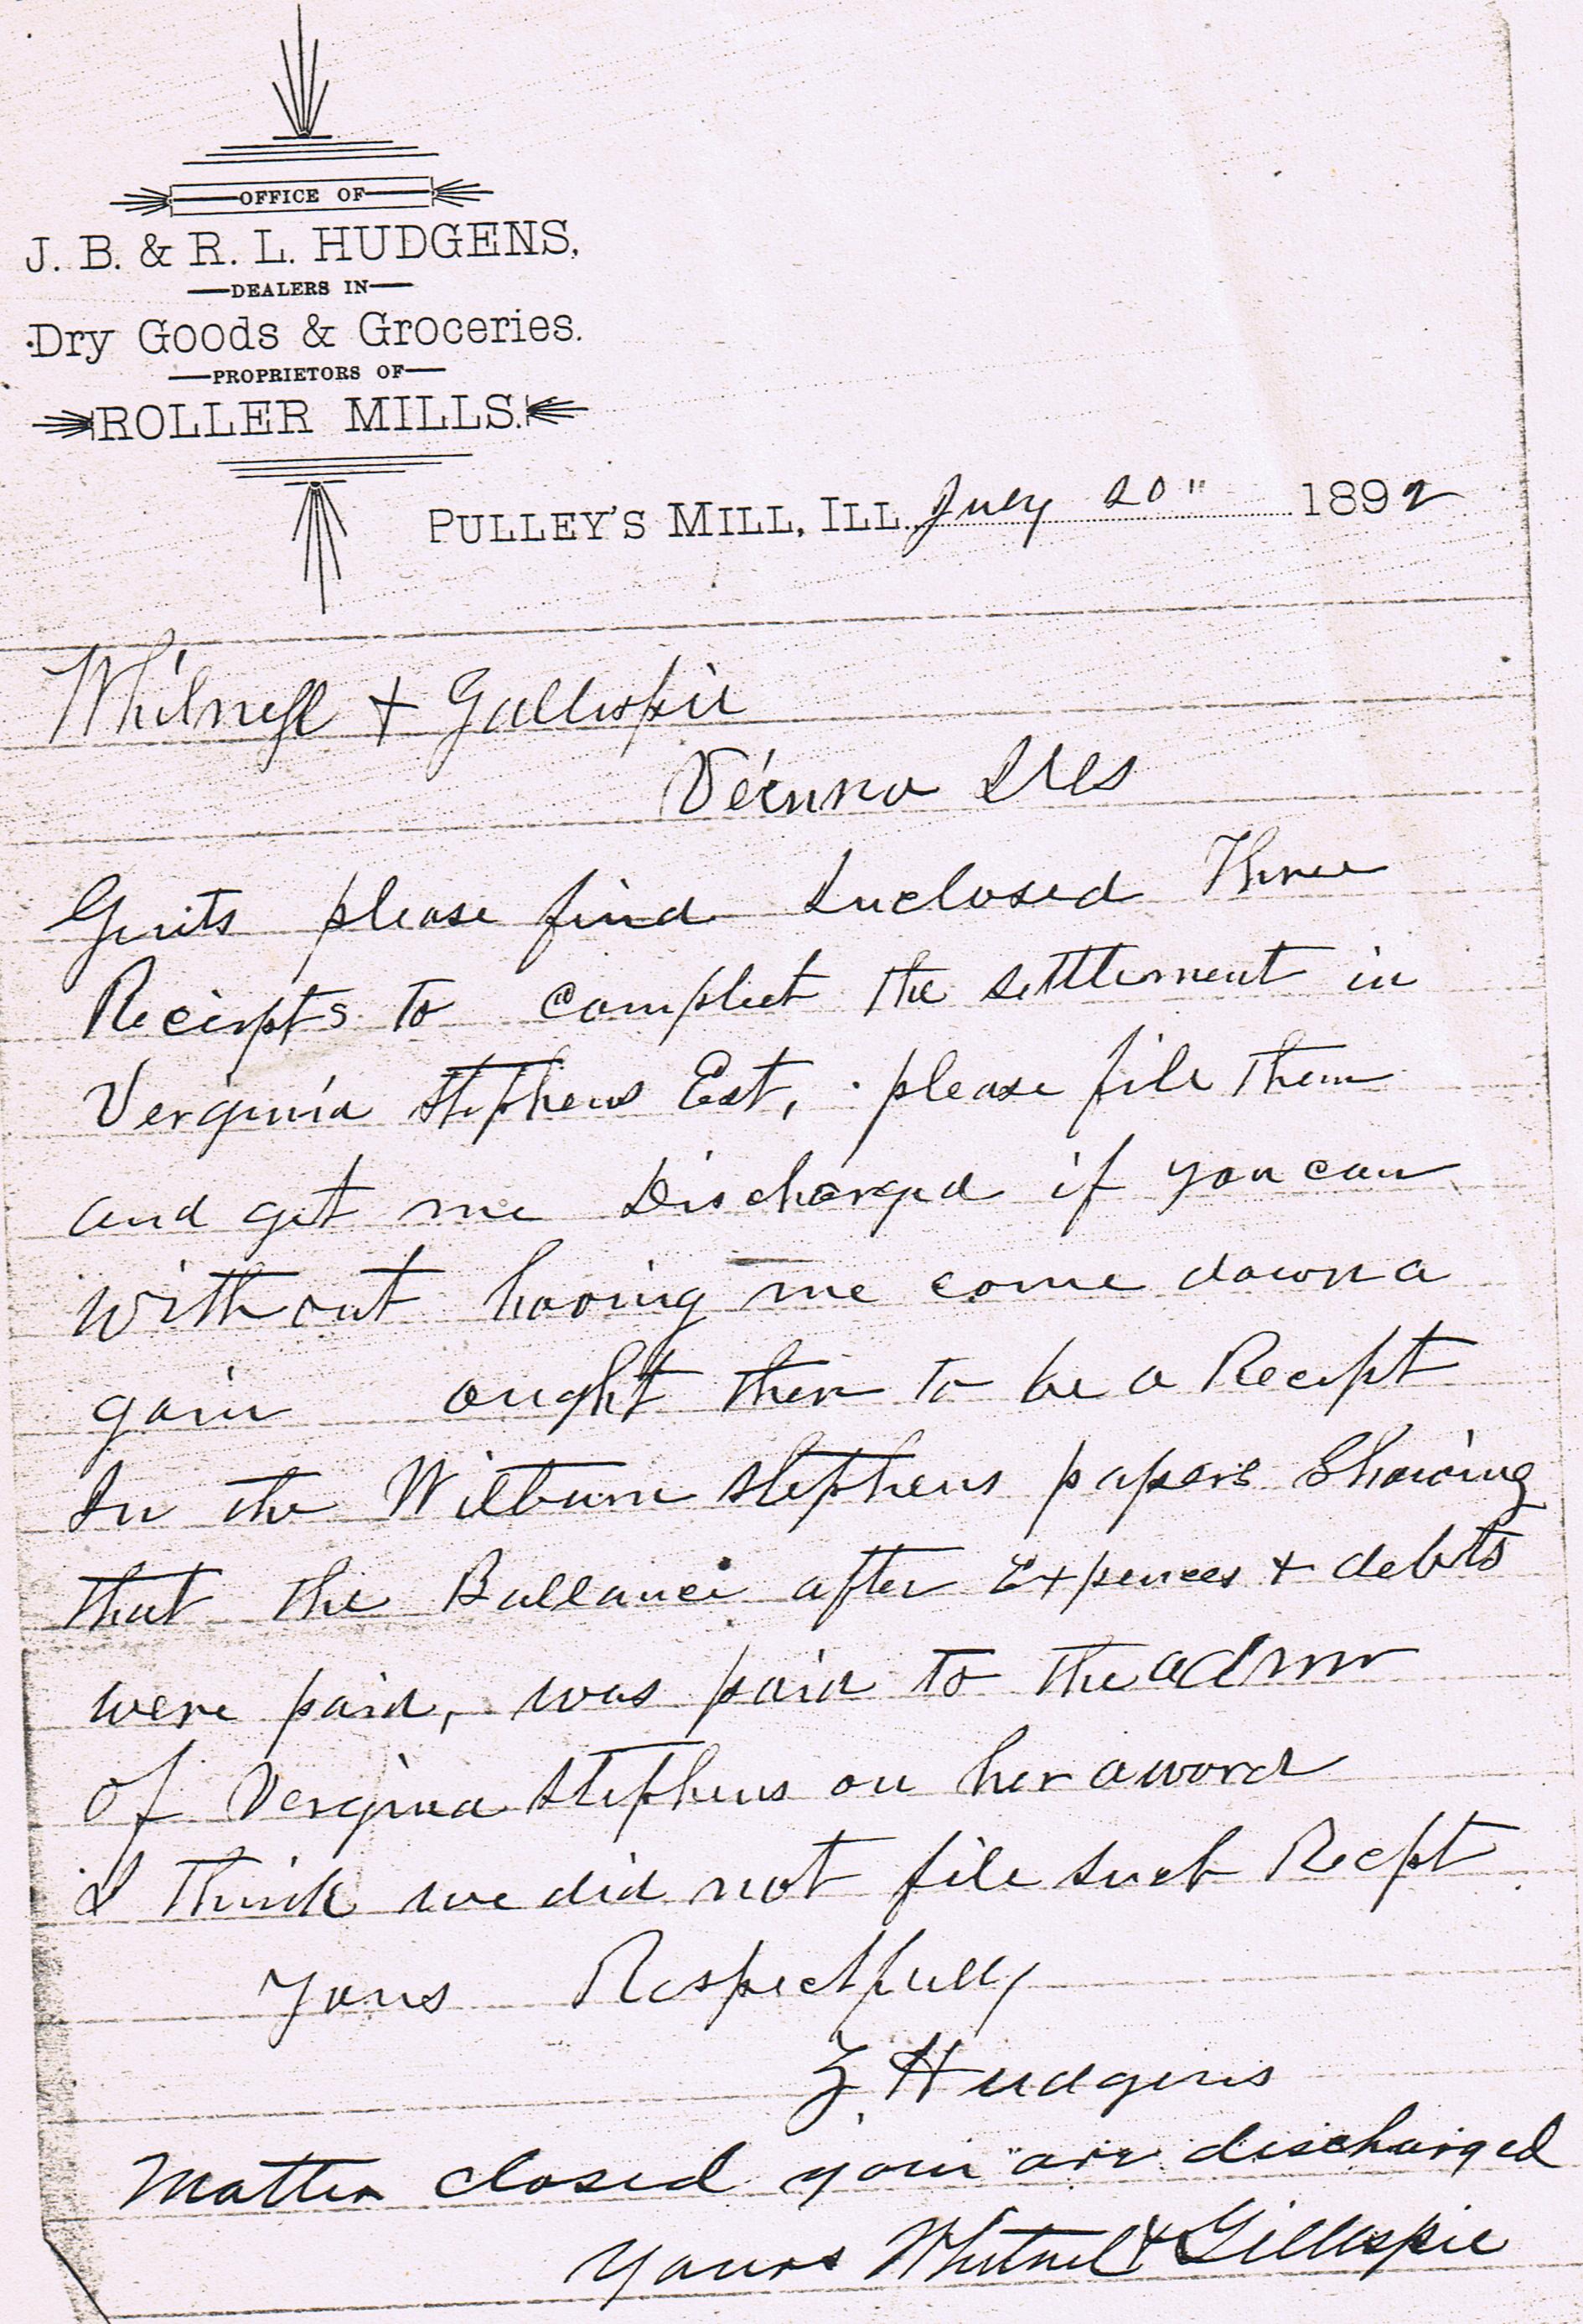 OFFICE OF
J. B. & R. L. HUDGENS,
DEALERS IN
Dry Goods & Groceries.
PROPRIETORS OF
ROLLER MILLS.
PULLEY'S MILL, ILL. July 20" 1892
& Gallispie
Veinna Ills
Gents please find Inclosed Three
Reciepts to compleet the settlement in
Verginia Stephens Est, please file them
and get me Discharged if you can
without having me come down a
gain ought their to be a Recept
In the Wilburn Stephens papers Showing
that the Ballance after Expences + debts
were paid, was paid to the admr
of Vergina Stephens on her aword
I think we did not file such Recpt
Yours Respectfully
Z Hudgens
Matter closed you are discharged
Yours Whitnel & Gillespie